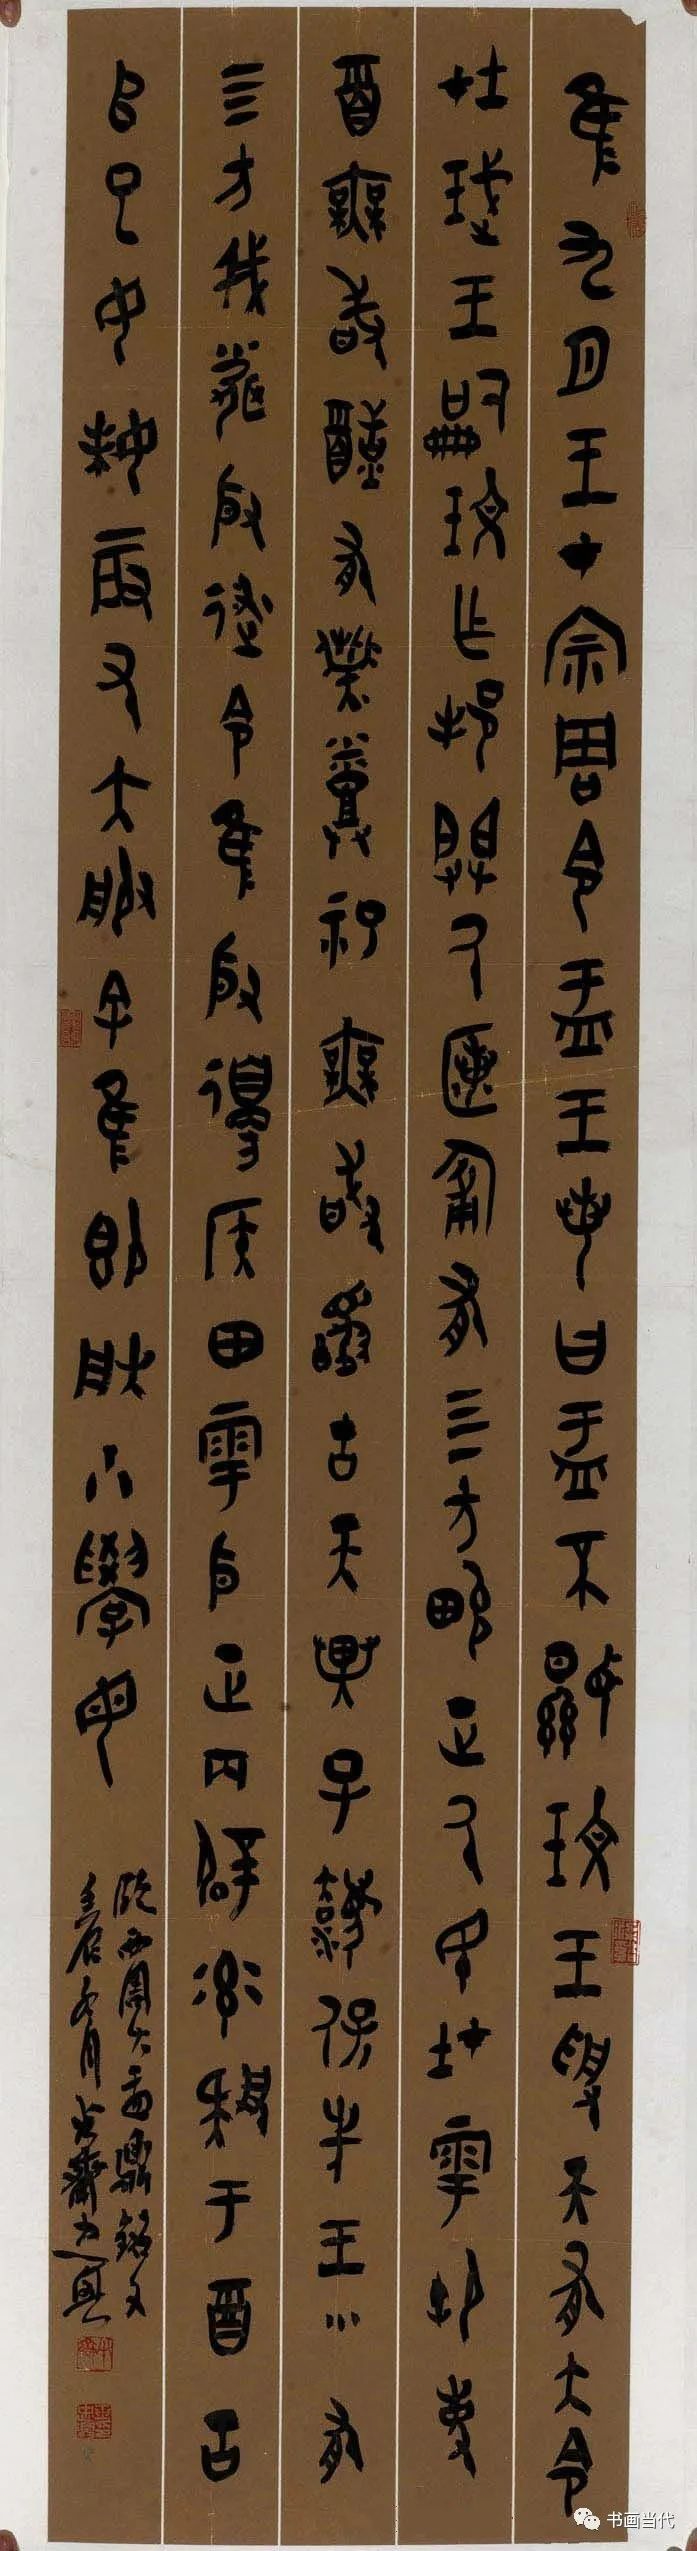 隹九月王才宗周令盂王若曰盂不顯玟王受天有大令
在珷王嗣玟乍邦闢氒匿匍有亖方畯正氒民在雩御事
酉無敢酖有祡烝祀無敢醻古天異子灋保先王有
亖方我聞殷述令隹殷邊侯田雩殷正百辟率肆于酉古
𠂤已女妹辰又大服余隹即朕小學女
臨西周大盂鼎銘文
壬辰月尚齋
书画当代